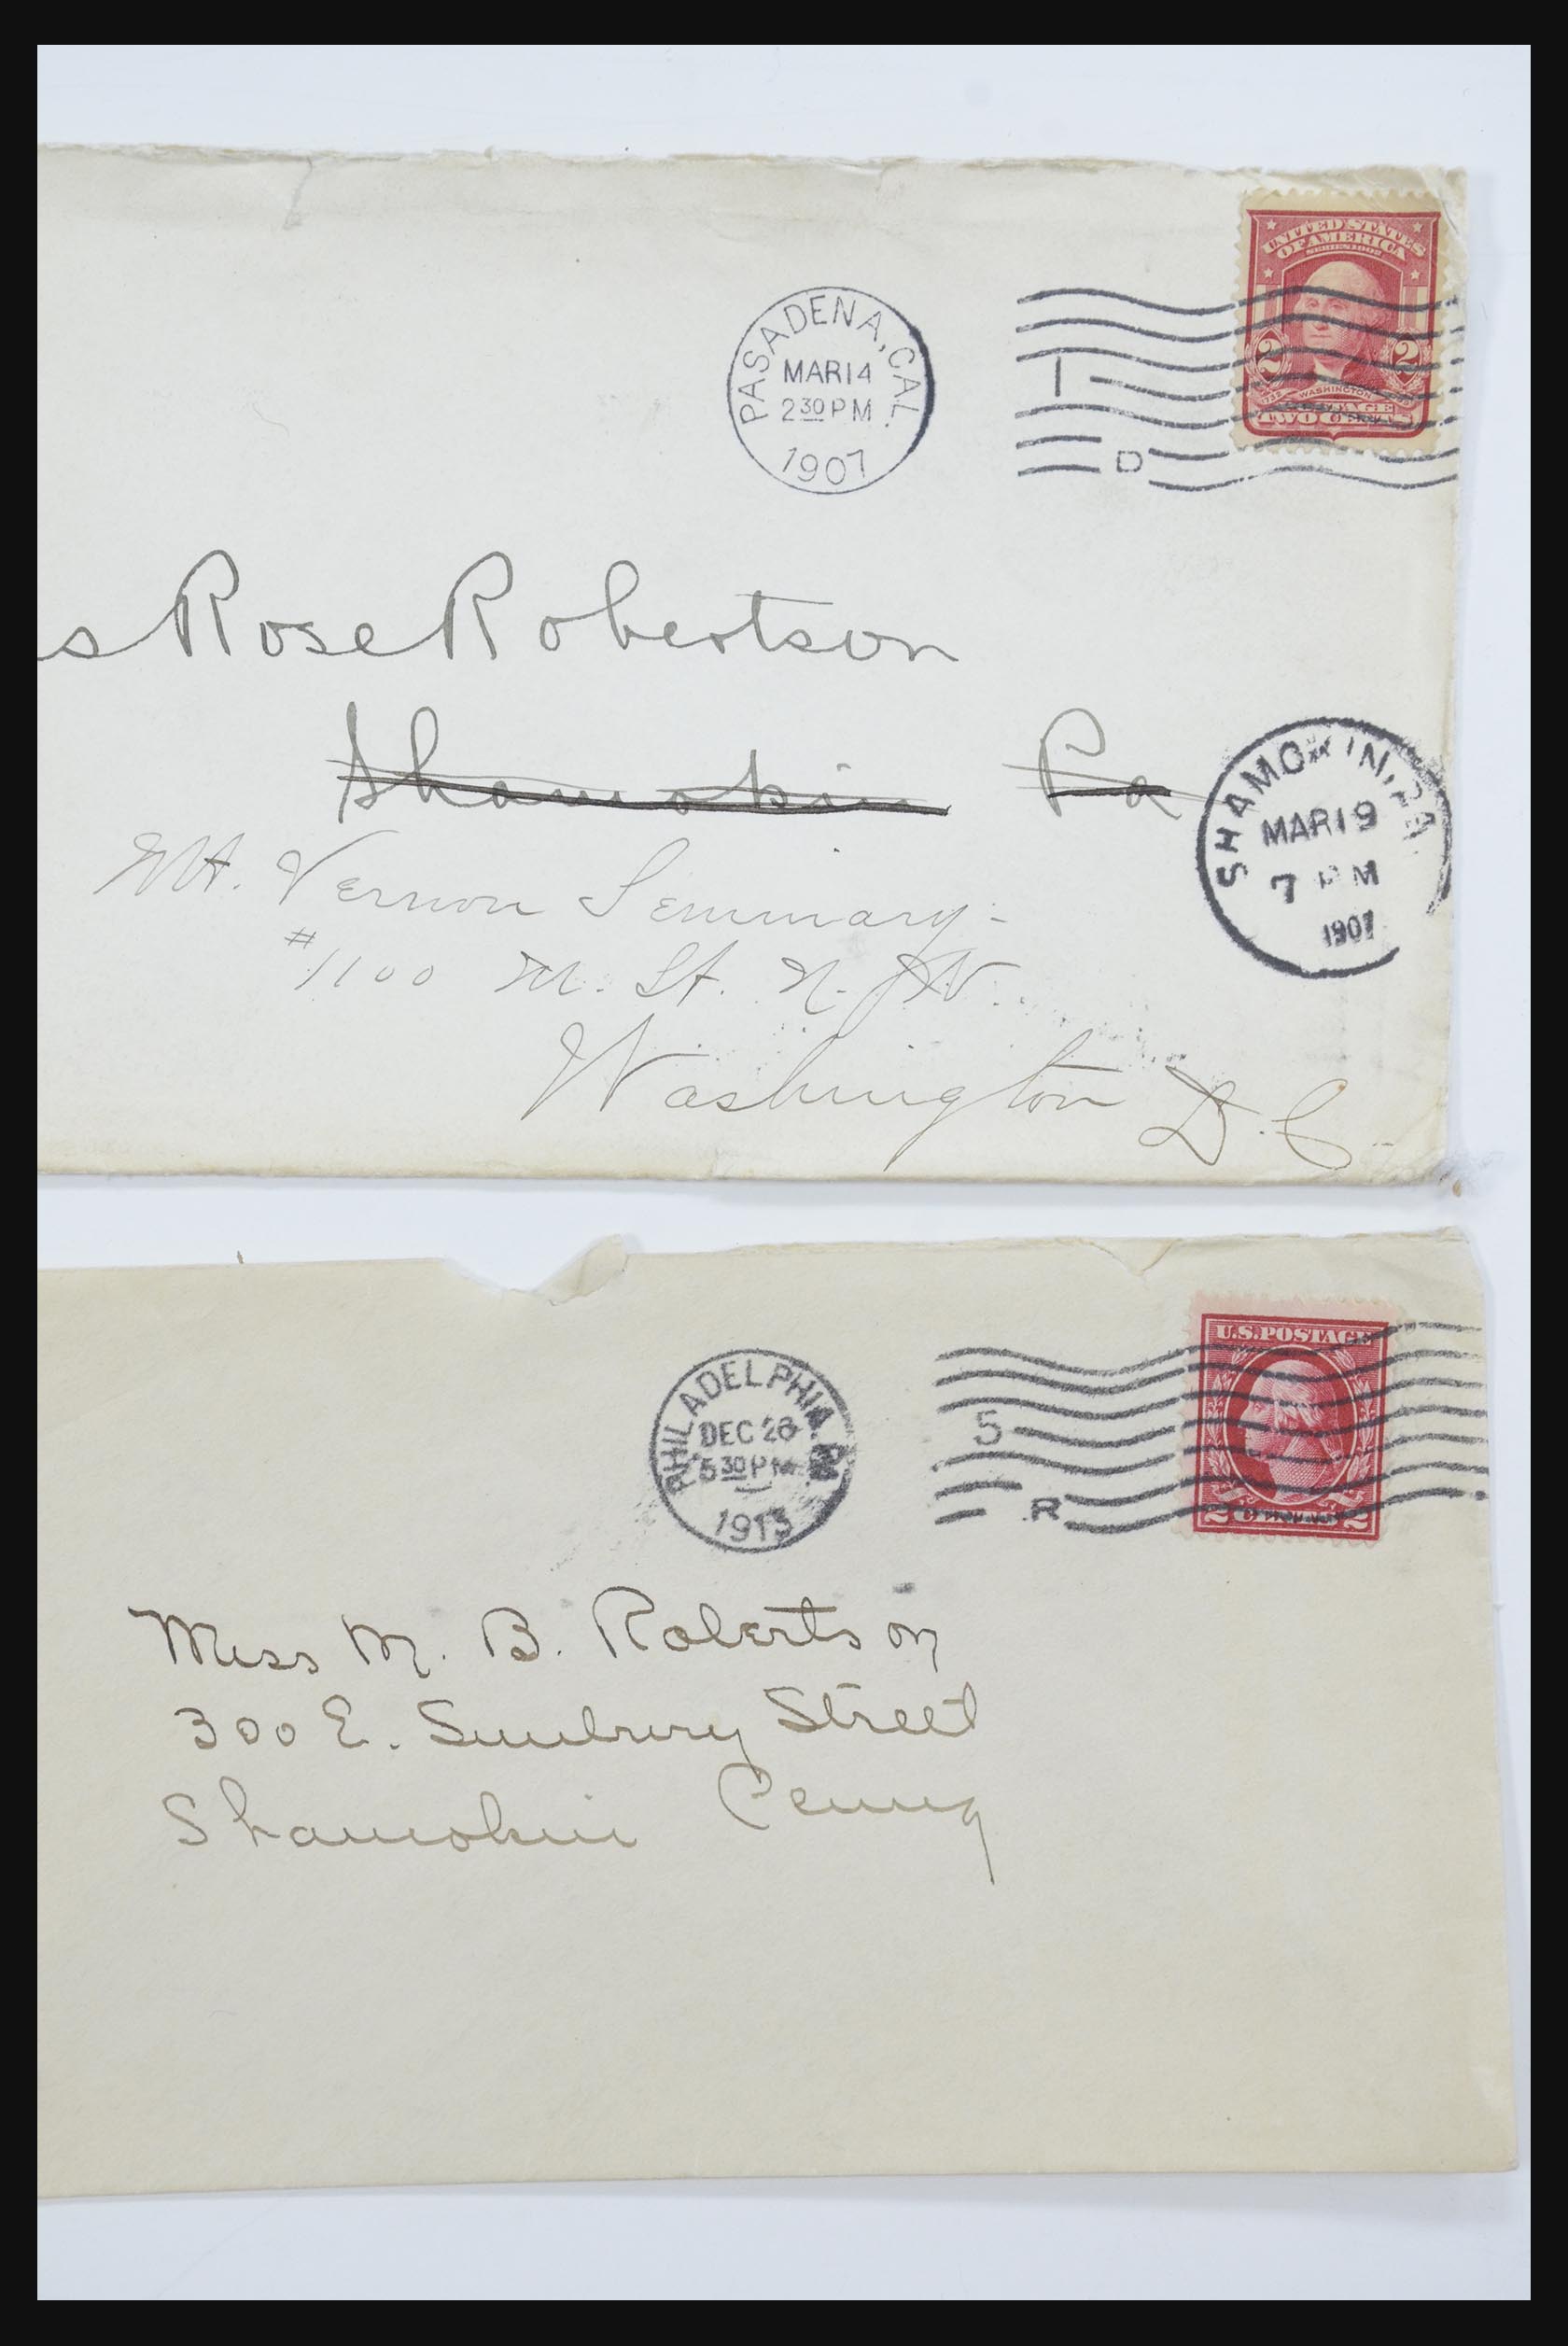 UNITED STATES
OF AMERICA
SERIES 1902
2 2
1732 WASHINGTON
POSTAGE
TWO CENTS
PASADENA, CAL.
MAR 14
2 30 PM
1907
1
D
s Rose Robertson
Shamokin Pa
SHAMOKIN, PA.
MAR 19
7 PM
1907
Mt. Vernon Seminary -
#1100 M. St. N. W.
Washington D. C.
U.S. POSTAGE
2 CENTS 2
PHILADELPHIA, PA
DEC 26
5 30 PM
1913
5
R
Miss M. B. Robertson
300 E. Sunbury Street
Shamokin Penna